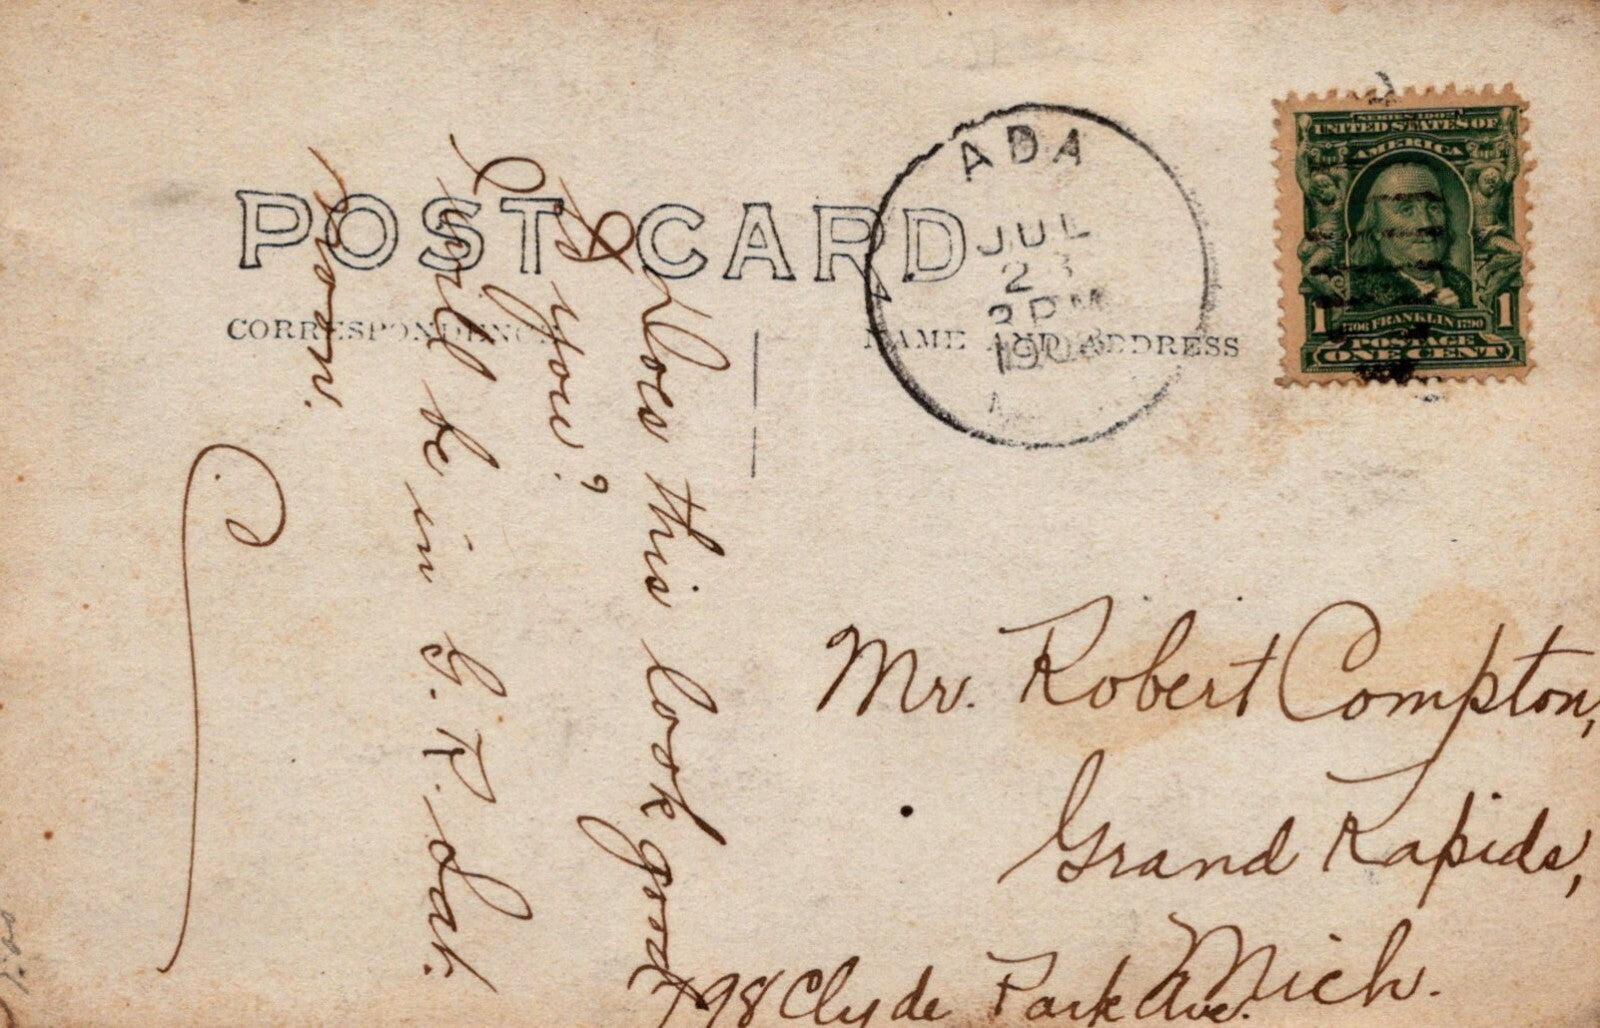 POST CARD
CORRESPONDENCE
NAME AND ADDRESS
ADA
JUL
23
PM
190
SERIES 1902
UNITED STATES OF
AMERICA
1 1
1706 FRANKLIN 1790
POSTAGE
ONE CENT
Does this look good
to you?
I will be in G. R. Sat.
noon.
C.
Mr. Robert Compton,
Grand Rapids,
Mich.
798 Clyde Park Ave.